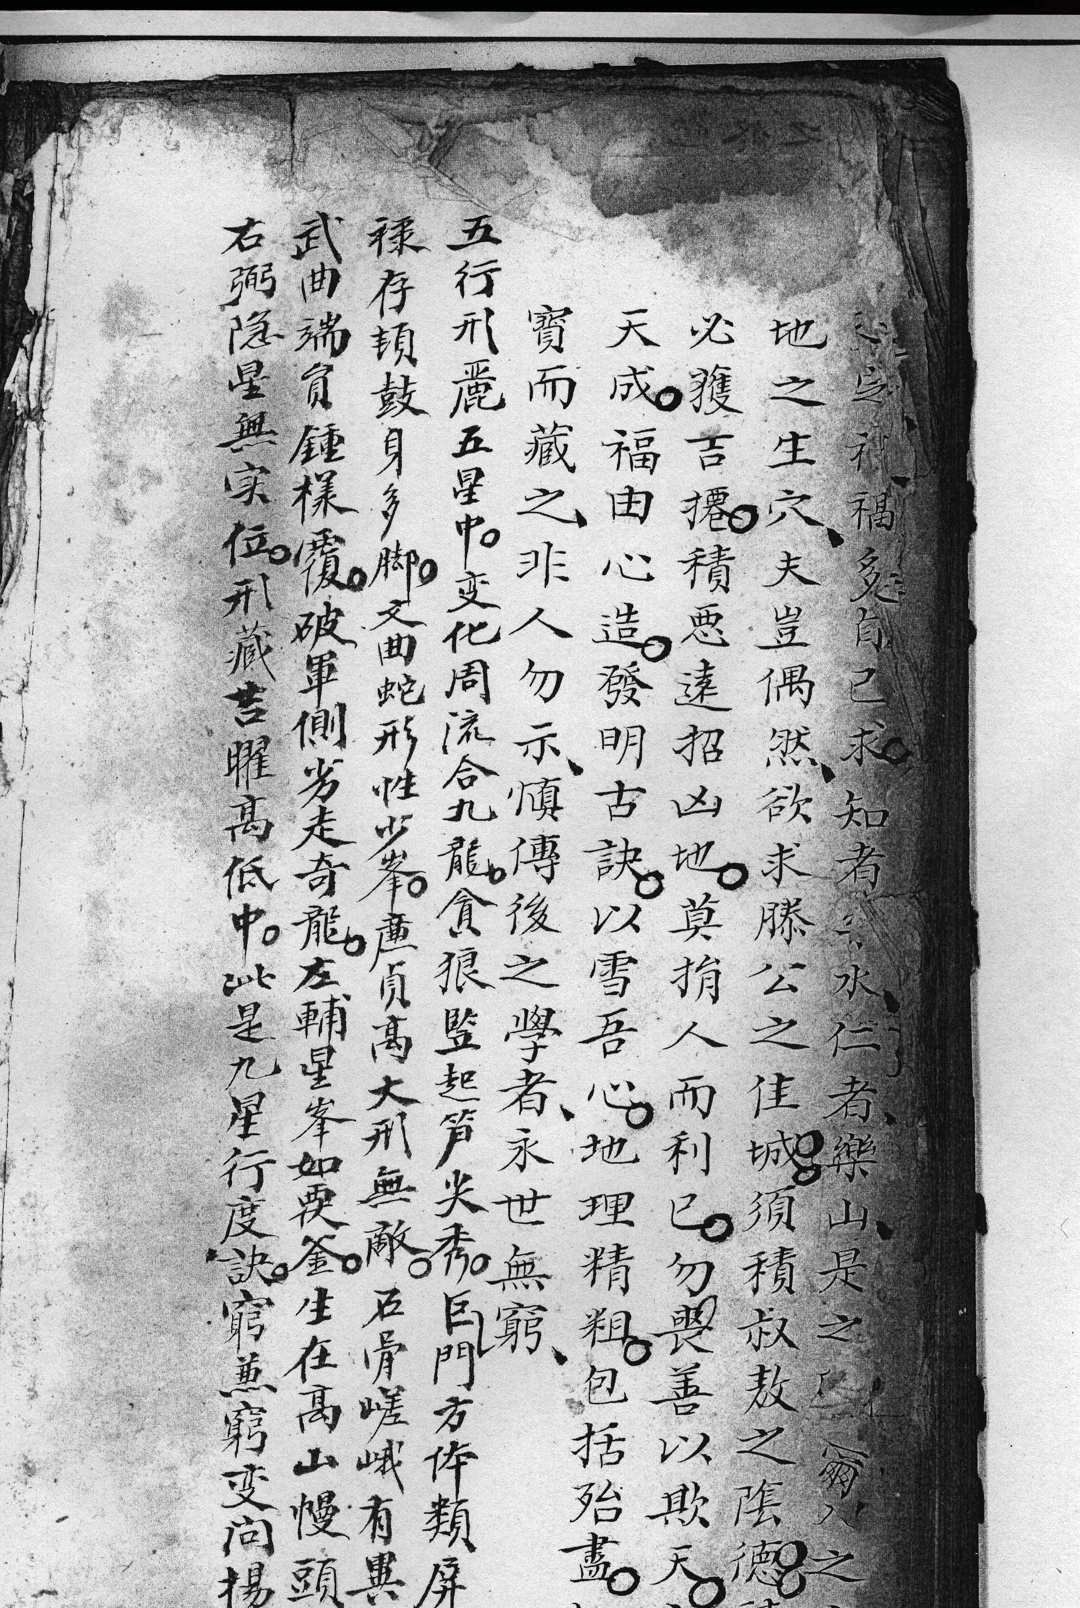 福自己求知者水仁者樂山是之之
地之生穴夫豈偶然欲求滕公之佳城須積叔敖之陰德
必獲吉遷積悪遠招凶地莫損人而利已勿畏善以欺天
天成福由心造發明古訣以雪吾心地理精粗包括殆盡
寳而藏之非人勿示慎傳後之學者永世無窮
五行形麗五星中变化周流合九龍貪狼竪起笋尖秀巨門方体類屏
禄存頓鼓身多脚文曲蛇形性少峯廉貞高大形無敵石骨嵯峨有異
武曲端員鍾樣覆破軍側劣走奇龍左輔星峯如覄釜生在高山幔頭
右弼隐星無实位形藏吉曜高低中此是九星行度訣窮兼窮变问楊